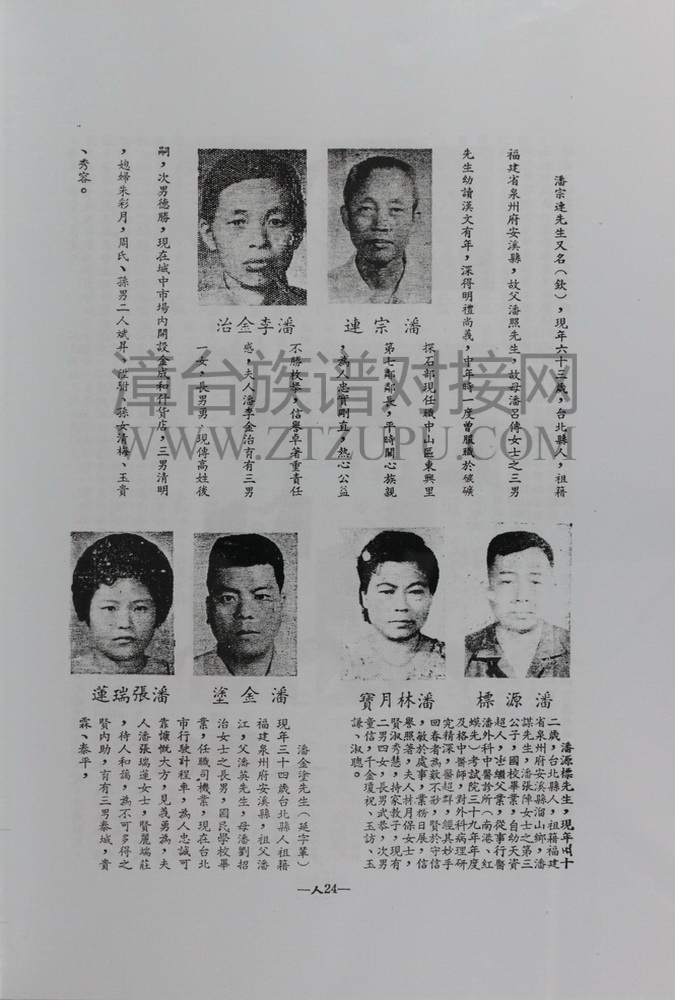 潘宗連先生又名（欽），現年六十三歲，台北縣人，祖籍
福建省泉州府安溪縣，故父潘照先生，故母潘呂傳女士之三男
先生幼讀漢文有年，深得明禮尚義，中年時一度曾服職於煤礦
採石部現任職中山區東興里
第七鄰鄰長，平時關心族親
，為人忠實剛直，熱心公益
不勝枚舉，信譽卓著重責任
感，夫人潘李金治育有三男
一女，長男勇，現傳高姓後
嗣，次男德勝，現在城中市場內開設金成和什貨店，三男清明
，媳婦朱彩月，周氏、孫男二人斌昇、，孫女清梅、玉貴
、秀容。
潘宗連
潘李金治
潘源標先生，現年四十
二歲，台北縣人祖籍福建
省泉州府安溪縣溜山鄉，潘
謀先生，潘張陣女士之第三
公子，國校畢業，自幼天資
超人，繼父業，從事行醫
潘外科中醫診所（南港、紅
娛先）考試院三十九年年度
及格中醫師，對外科病理研
究精深，醫術超群，經其妙手
回春者為數不尠，賢於守信
，敏於處事，業務日展，信
譽照著，夫人林月保女士，
賢淑秀慧，持家教子，現有
二男四女，長男武恭，次男
童信，千金瓊祝、玉訪、玉
謙、淑聰。
潘源標
潘林月寶
潘金塗先生（延字輩）
現年三十四歲台北縣人祖籍
福建泉州府安溪縣，祖父潘
江，父潘英先生，母潘劉招
治女士之長男，國民學校畢
業，任職司機業，現在台北
市行駛計程車，為人忠誠可
靠慷慨大方，見義勇為，夫
人潘張瑞蓮女士，賢麗端莊
，待人和藹，為不可多得之
賢內助，育有三男泰城，貴
霖、泰平，
潘金塗
潘張瑞蓮
—人24—
漳台族谱对接网
WWW.ZTZUPU.COM